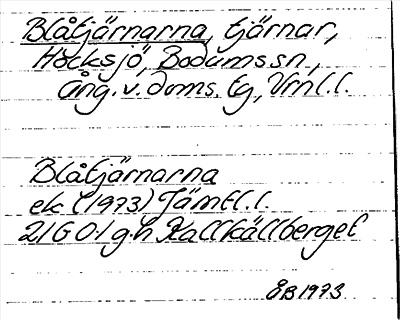 Blåtjärnarna, tjärnar,
Hocksjö, Bodums sn,
Ång. v. doms. tg, Vrnl. l.
Blåtjärnarna
ek (1973) Jämtl. l.
21G 0i g.h Kallkällberget
ÅB 1973